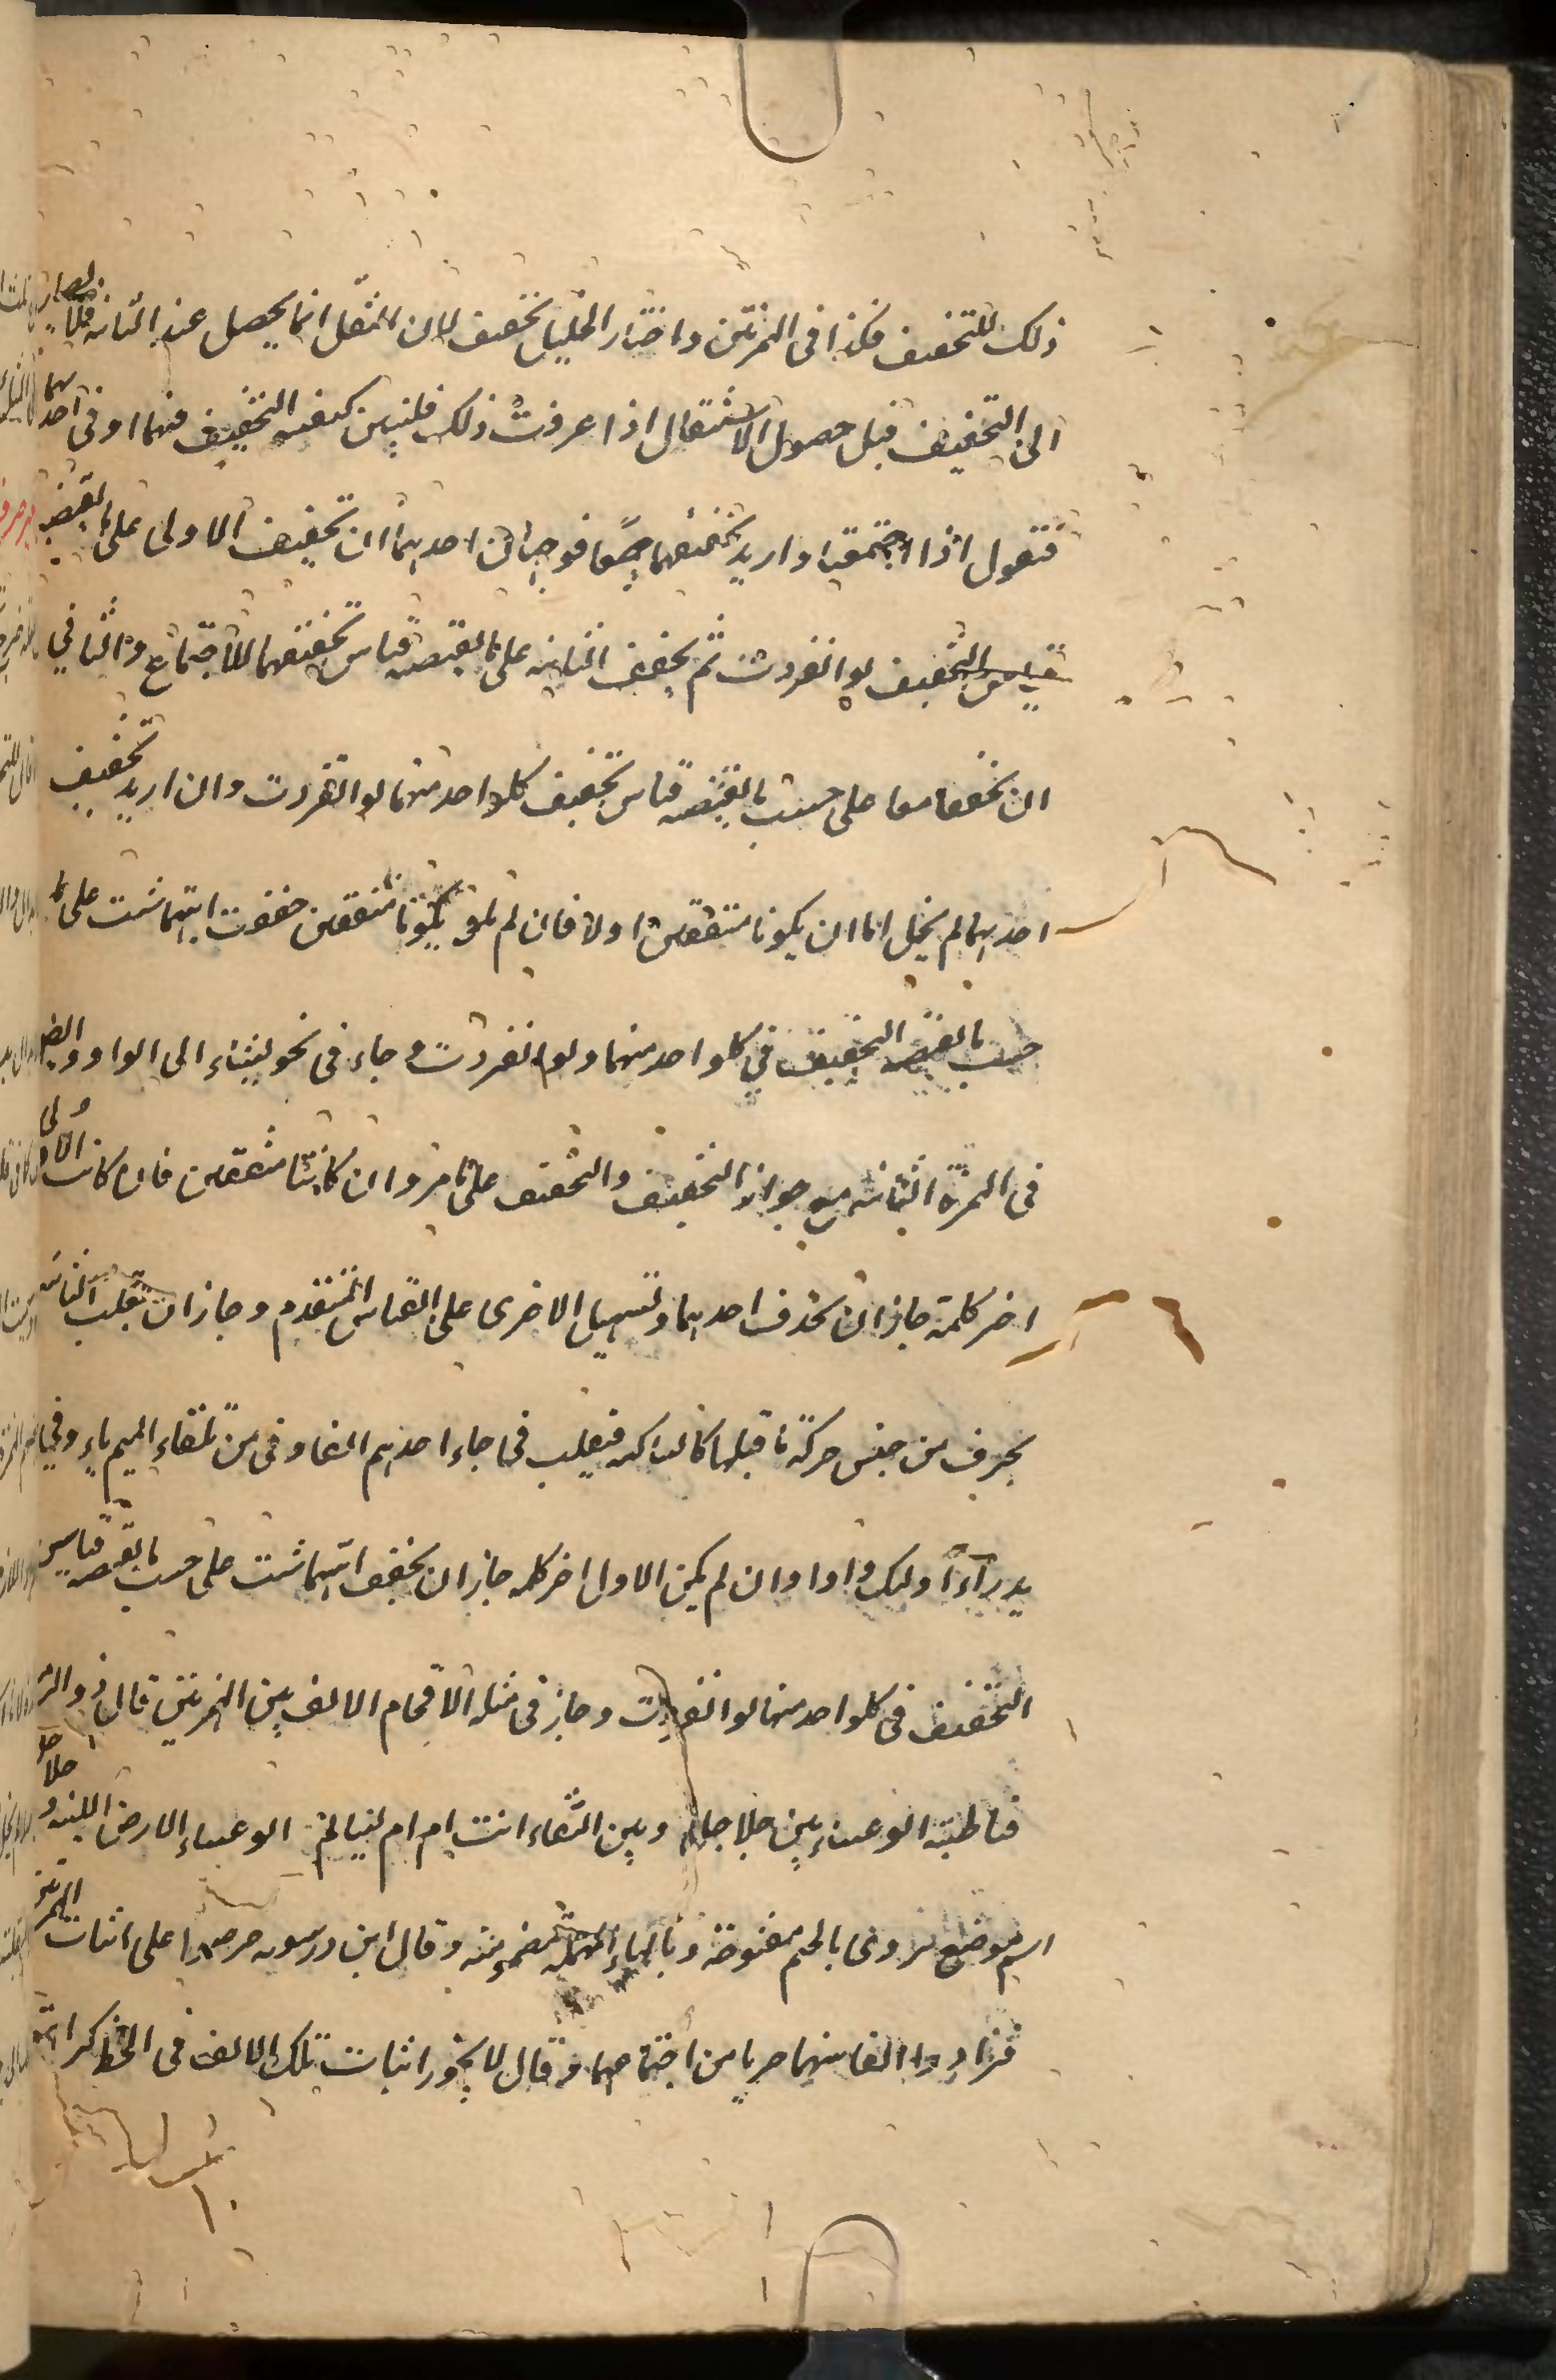 ذلك للتخفيف فكذا فى الهمزتين واختار الخليل تخفيف لان الثقل انما يحصل عند الثانية فلا يصار
الى التخفيف قبل حصول الاستثقال اذا عرفت ذلك فلنبين كيفية التخفيف فيهما او فى احديهما
فتقول اذا اجتمعتا واريد تخفيفهما جميعا فوجهان احديهما ان تخفيف الاولى على ما يقتضيه
قياس التخفيف لو انفردت ثم يخفف الثانية على ما يقتضيه قياس تخفيفهما للاجتماع والثاني
ان تخففا معا على حسب ما يقتضيه قياس تخفيف كلواحد منهما لو انفردت وان اريد تخفيف
احديهما لم يخل اما ان يكونا متفقين او لا فان لم يكونا متفقين خففت ايتهما شئت على ما
حسب ما يقتضيه التخفيف في كلواحد منهما ولو انفردت وجاء فى نحو يشاء الى الواو وايضا
فى الهمزة الثانية مع جواز التخفيف والتحقيق على ما مر وان كانتا متفقين فان كانت الاولى
اخر كلمة جاز ان تحذف احديهما وتسهيل الاخرى على القياس المتقدم وجاز ان تقلب الثانية
بحرف من جنس حركة ما قبلها كالساكنة فيقلب فى جاء احدهم الفا وفى من تلقاء الميم ياء وفي
يدرآء اولئك واوا وان لم يكن الاول اخر كلمة جاز ان يخفف ايتهما شئت على حسب ما يقتضيه قياس
التخفيف فى كلواحد منهما لو انفردت وجاز فى مثله الاقحام الالف بين الهمزتين قال ذو الرمة
فيا ظبية الوعساء بين جلاجل وبين النقاء اانت ام ام سالم الوعساء الارض اللينة وجلاجل
اسم موضع يروى بالجيم مفتوحة وبالحاء المهملة مضمومة وقال ابن درستويه حرصوا على اثبات الهمزتين
فزادوا الفا بينهما هربا من اجتماعهما وقال لا يجوز اثبات تلك الالف فى الخط كراهة